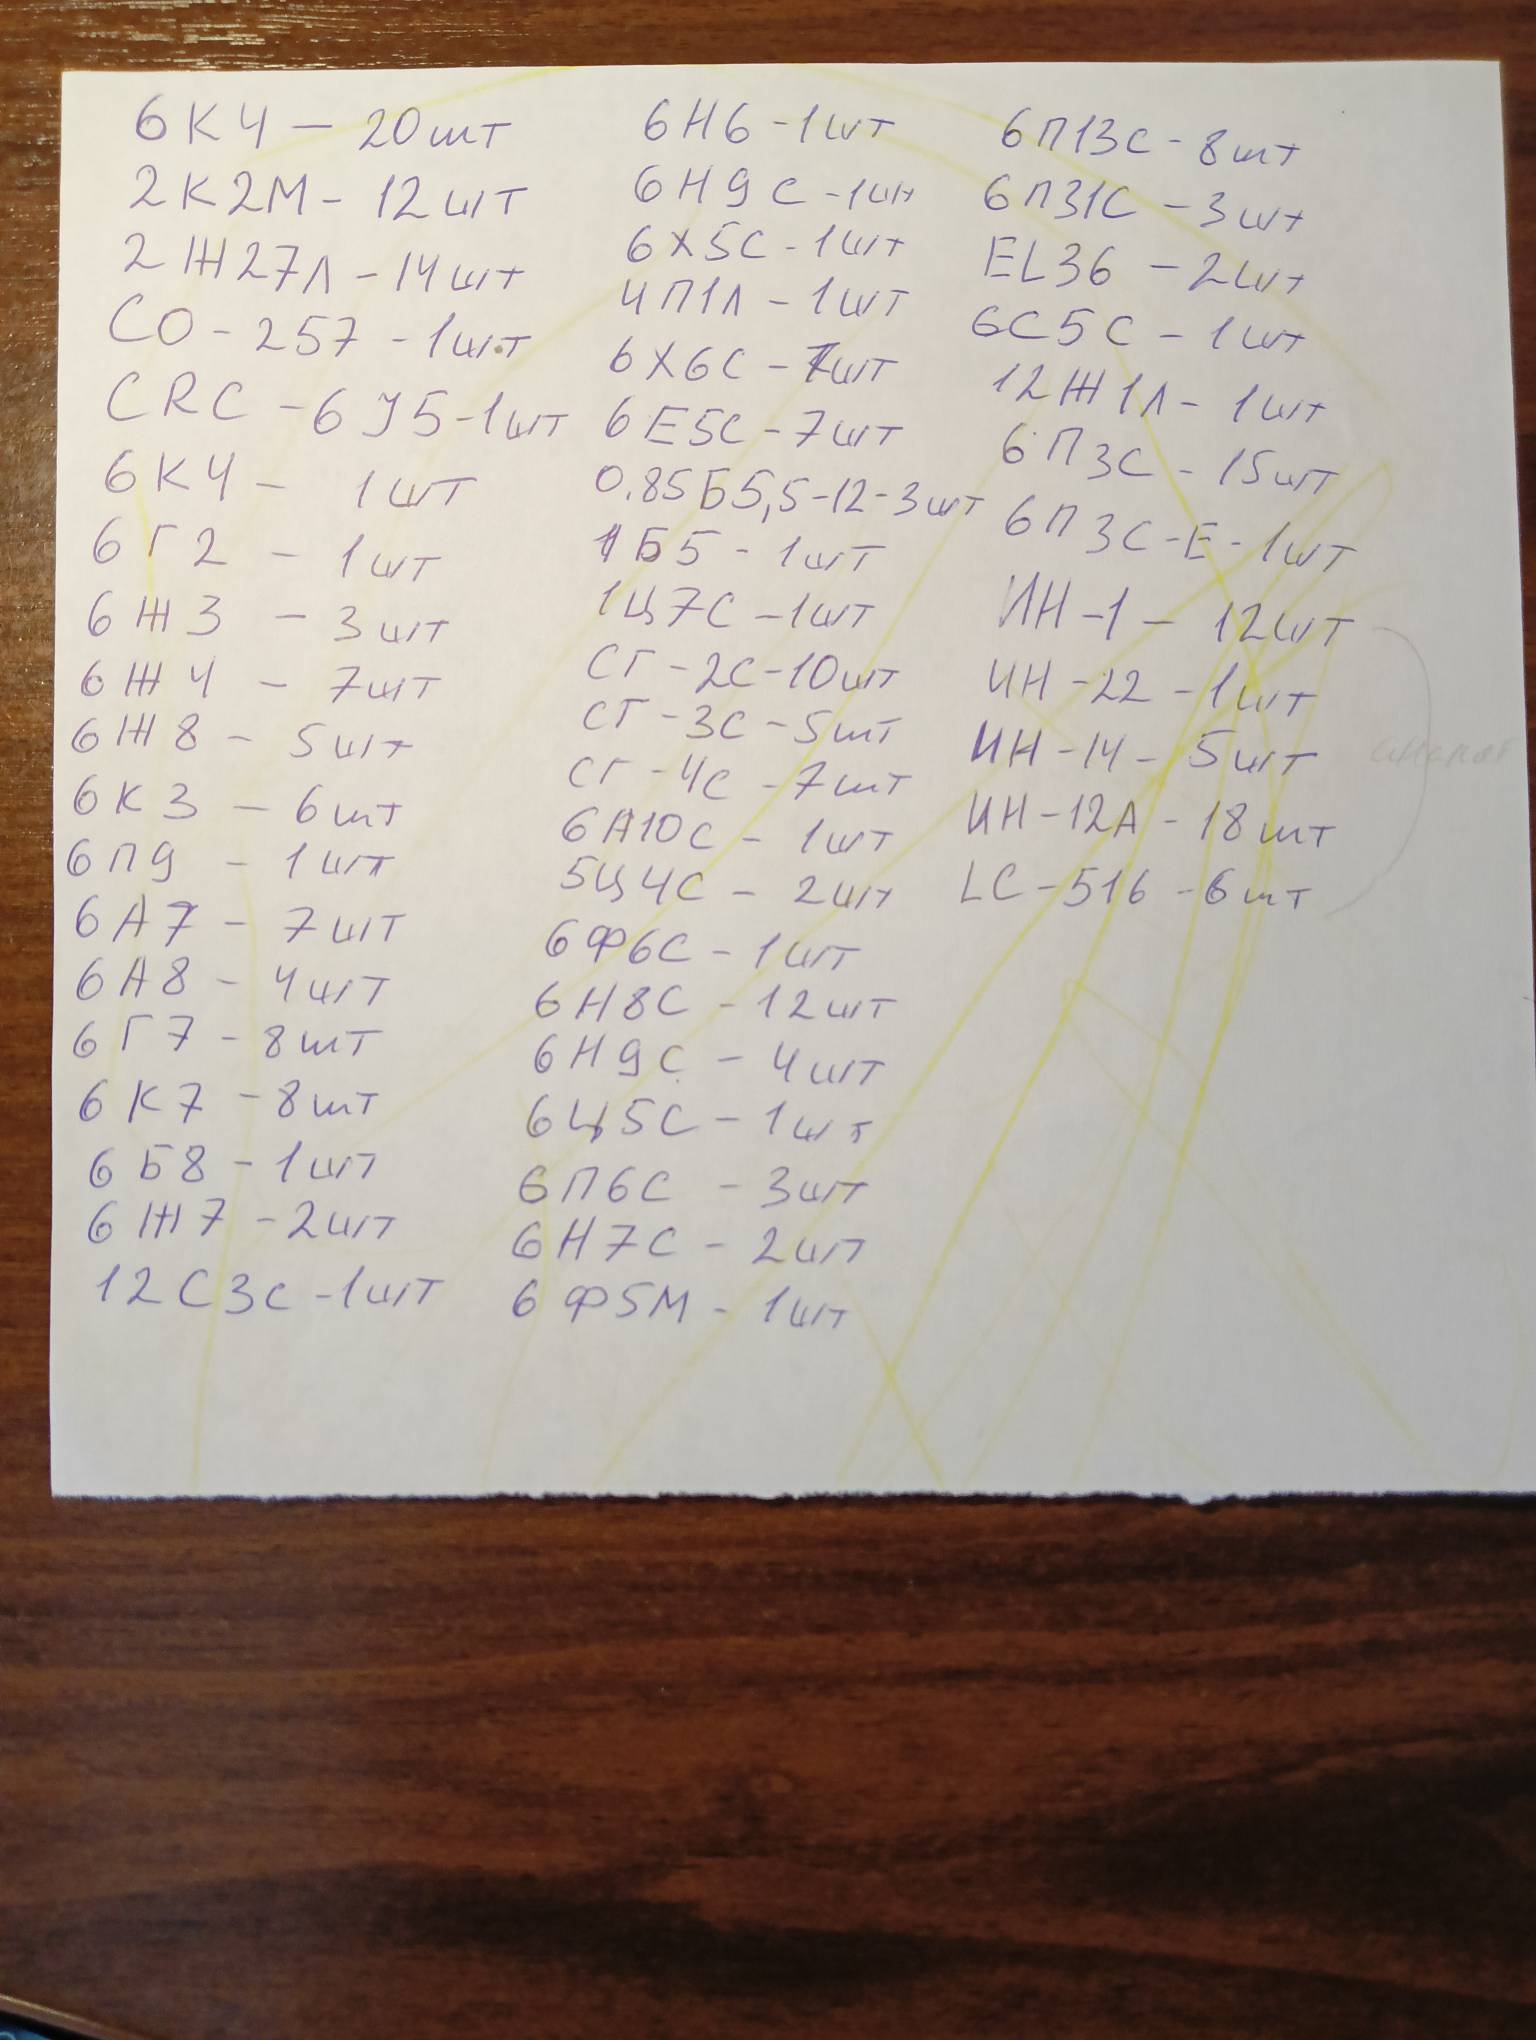 6К4 - 20шт
2К2М - 12шт
2Ж27Л - 14шт
СО-257 - 1шт
CRC - 6J5 - 1шт
6К4 - 1шт
6Г2 - 1шт
6Ж3 - 3шт
6Ж4 - 7шт
6Ж8 - 5шт
6К3 - 6шт
6П9 - 1шт
6А7 - 7шт
6А8 - 4шт
6Г7 - 8шт
6К7 - 8шт
6Б8 - 1шт
6Ж7 - 2шт
12С3С - 1шт
6Н6 - 1шт
6Н9С - 1шт
6Х5С - 1шт
4П1Л - 1шт
6Х6С - 7шт
6Е5С - 7шт
0.85Б5,5-12 - 3шт
1Б5 - 1шт
1Ц7С - 1шт
СГ-2С - 10шт
СГ-3С - 5шт
СГ-4С - 7шт
6А10С - 1шт
5Ц4С - 2шт
6Ф6С - 1шт
6Н8С - 12шт
6Н9С - 4шт
6Ц5С - 1шт
6П6С - 3шт
6Н7С - 2шт
6Ф5М - 1шт
6П13С - 8шт
6П31С - 3шт
EL36 - 2шт
6С5С - 1шт
12Ж1Л - 1шт
6П3С - 15шт
6П3С-Е - 1шт
ИН-1 - 12шт
ИН-22 - 1шт
ИН-14 - 5шт
ИН-12А - 18шт
LC-516 - 6шт